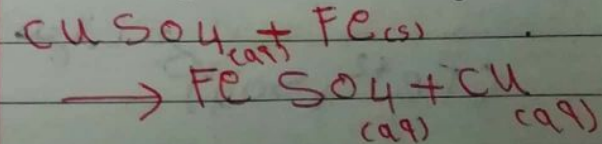 CuSO4(aq) + Fe(s)
→ FeSO4(aq) + Cu(aq)